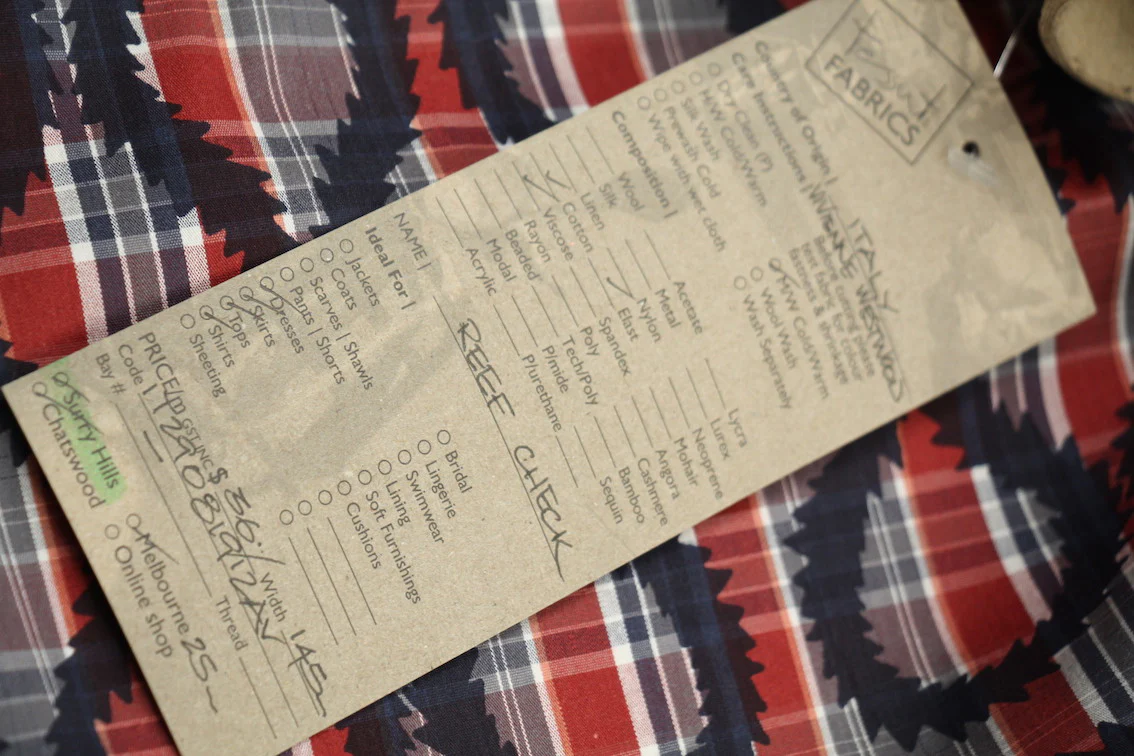 The Fabric
FABRICS
Country of Origin | ITALY
VIVIENNE WESTWOOD
Care Instructions | Before cutting please
test fabric for colour
fastness & shrinkage
Dry Clean (P)
H/W Cold/Warm
Silk Wash
Prewash Cold
Wipe with wet cloth
M/W Cold/Warm
Wool Wash
Wash Separately
Composition |
Wool
Silk
Linen
Cotton
Viscose
Rayon
Beaded
Modal
Acrylic
Acetate
Metal
Nylon
Elast
Spandex
Poly
Tech/Poly
P/mide
P/urethane
Lycra
Lurex
Neoprene
Mohair
Angora
Cashmere
Bamboo
Sequin
NAME | REEF CHECK
Ideal For |
Jackets
Coats
Scarves | Shawls
Pants | Shorts
Dresses
Skirts
Tops
Shirts
Sheeting
Bridal
Lingerie
Swimwear
Lining
Soft Furnishings
Cushions
PRICE/m GST INC $ 36./ Width 145
Code |
Bay #
Thread
Surry Hills
Chatswood
Melbourne 25
Online shop